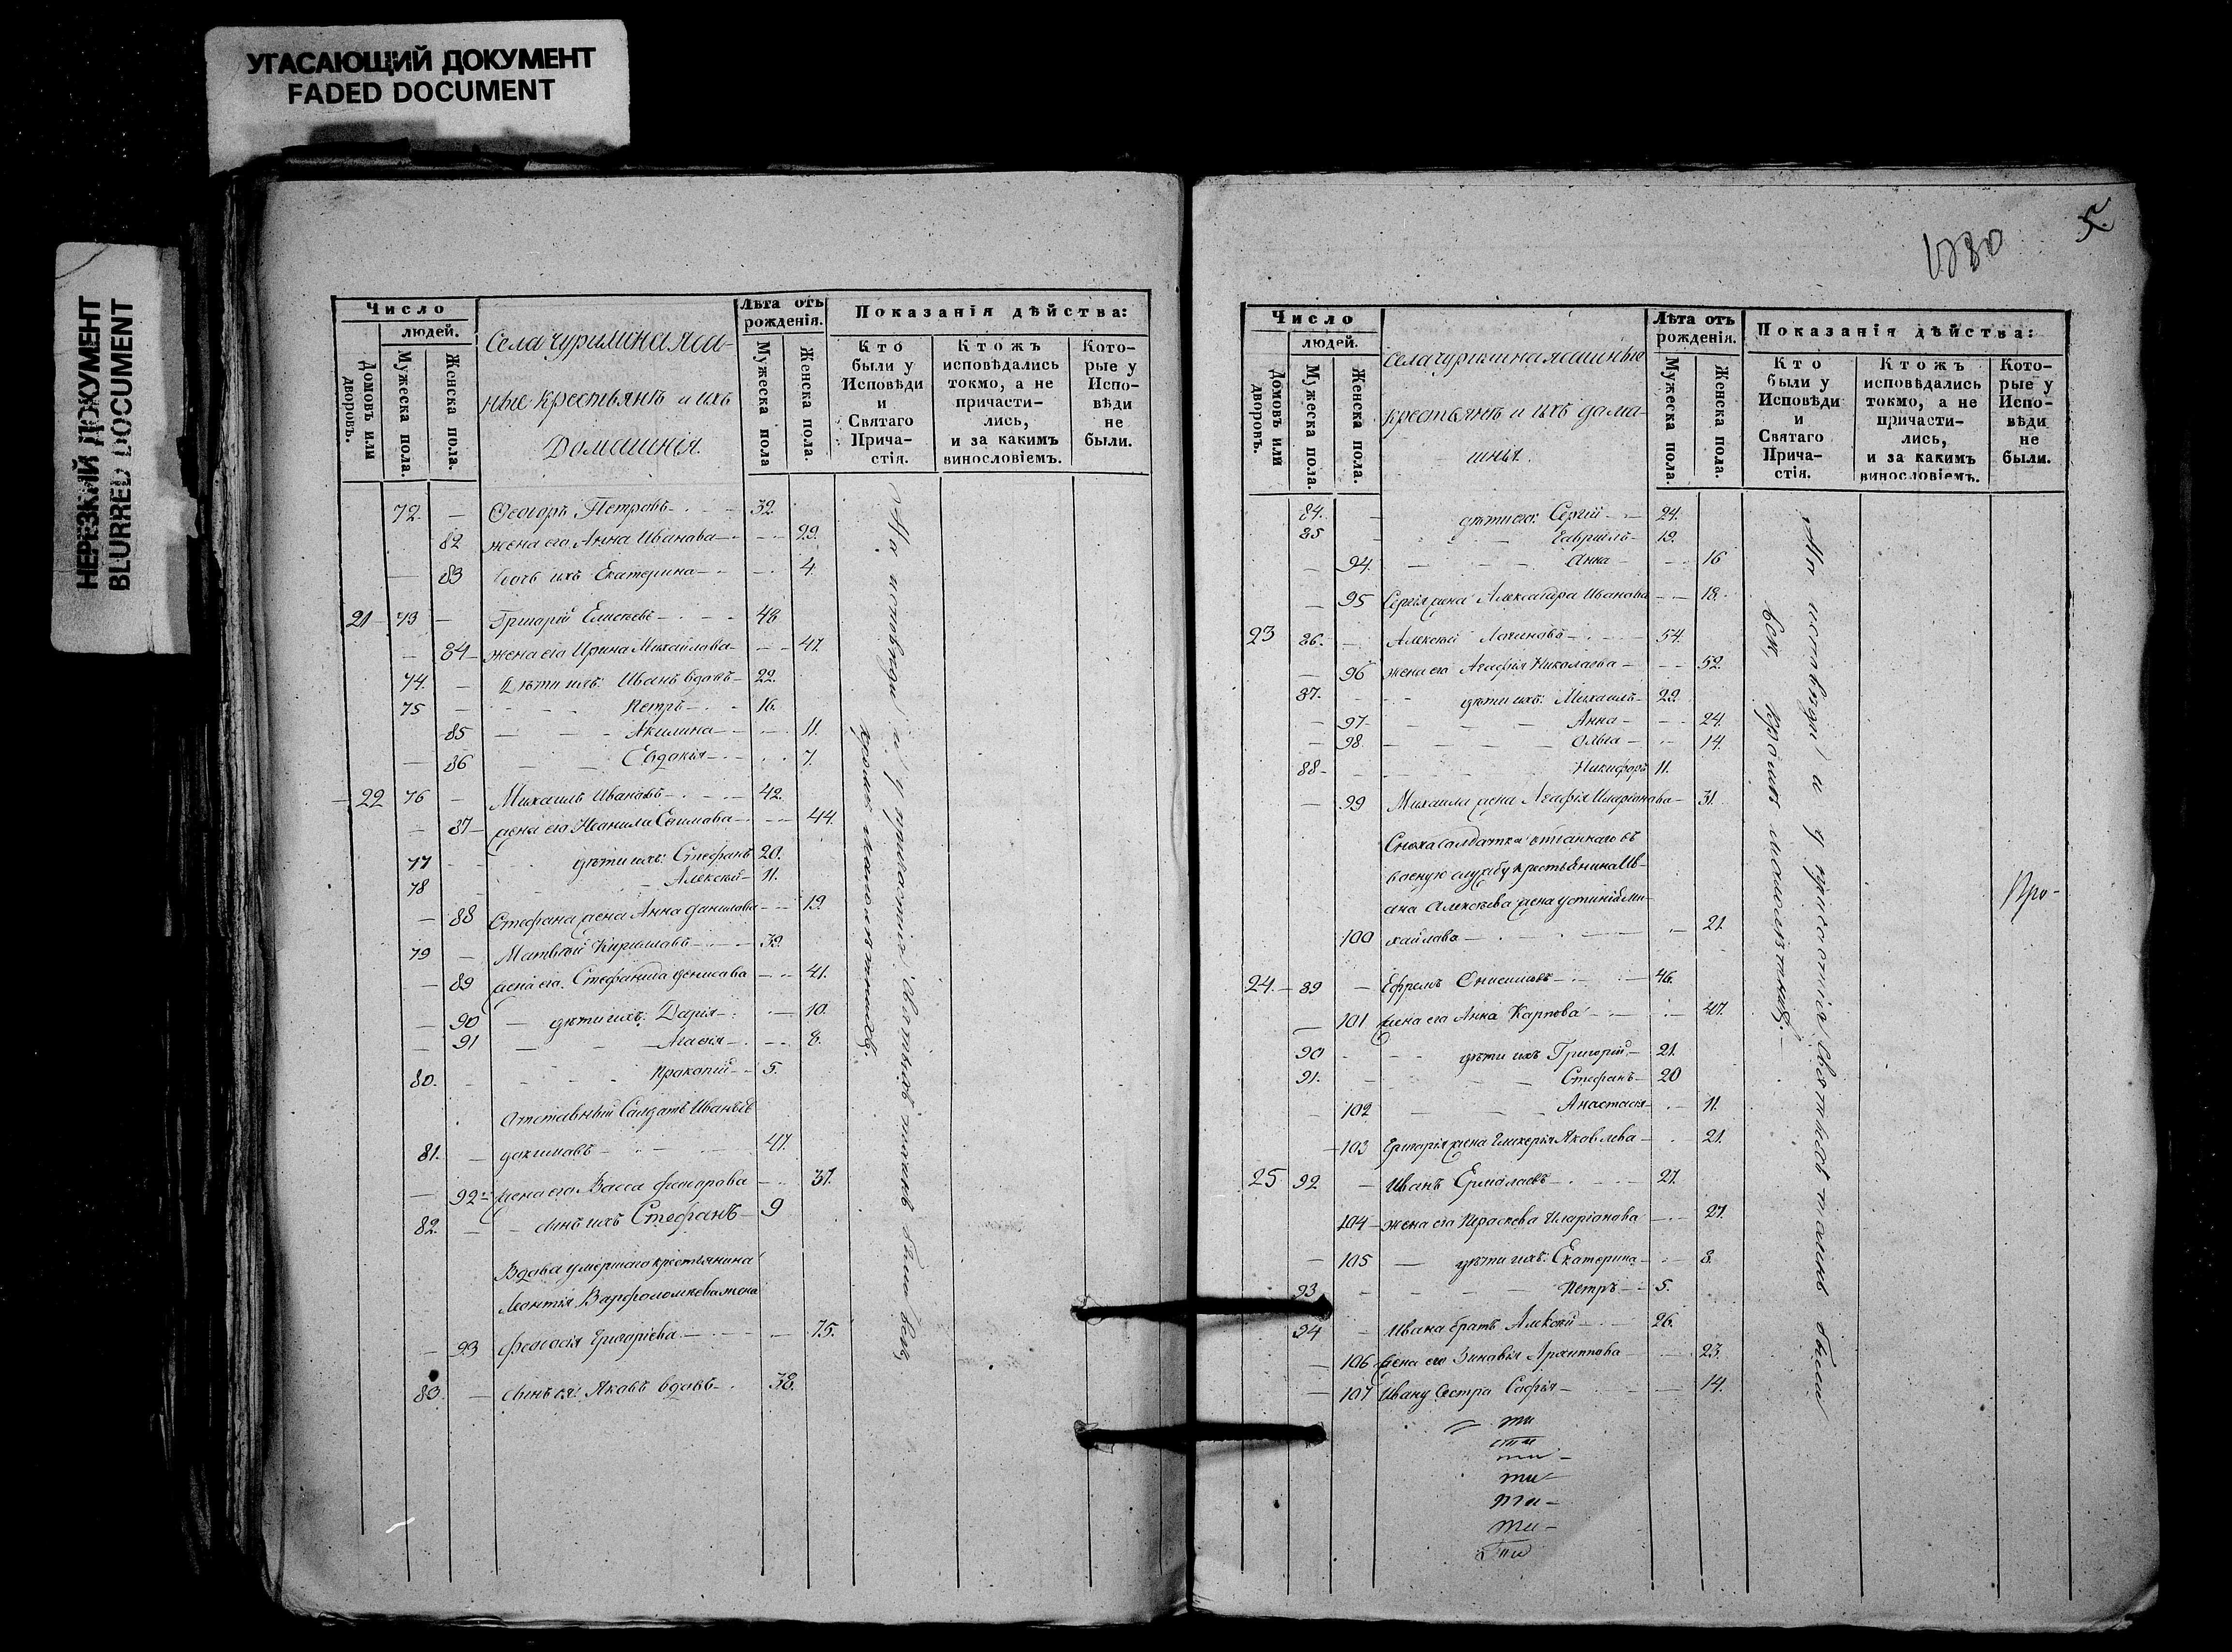 УГАСАЮЩИЙ ДОКУМЕНТ
FADED DOCUMENT
НЕРЕЗКИЙ ДОКУМЕНТ
BLURRED DOCUMENT
Число
людей.
Домовъ или дворовъ.
Мужеска пола.
Женска пола.
Села Чурилина яса-
ные крестьянѣ и ихъ
Домашнія.
Лѣта отъ рожденія.
Мужеска пола
Женска пола.
Показанія дѣйства:
Кто были у Исповѣди и Святаго Прича- стія.
Ктожъ исповѣдались токмо, а не причасти- лись, и за какимъ винословіемъ.
Кото- рые у Испо- вѣди не были.
72. — Ѳеодоръ Петровъ — 32.
82 жена его Анна Иванова — 29.
83 дочь ихъ Екатерина — 4.
21 73 — Григорій Елисѣевъ — 48
84 — жена его Ирина Михайлова — 47.
74. — Дѣти ихъ: Иванъ вдовъ — 22.
75 — Петръ — 16.
85 — Акилина — 11.
86 — Евдокія — 7.
22 76 — Михаилъ Ивановъ — 42.
87 — жена его Неонила Ефимова — 44.
77 — дѣти ихъ: Стефанъ 20.
78 — Алексѣй — 11.
88 Стефана жена Анна Данилова — 19.
79 — Матвѣй Кирилловъ — 39.
89 жена его Стефанида Денисова — 41.
90 — дѣти ихъ: Дарія — 10.
91 — Агафія — 8.
80. — Прокопій — 5.
Отставный Солдатъ Иванъ Ев-
81. — докимовъ — 47.
92 жена его Васса Федорова — 37.
82. — сынъ ихъ Стефанъ — 9
Вдова умершаго крестьянина
Леонтія Варфоломѣева жена
93 Феодосія Григоріева — 75.
83. — сынъ ея Яковъ вдовъ — 38.
На исповѣди и у причастія Святыхъ таинъ были всѣ,
кромѣ малолѣтнихъ.
1230
5.
Число
людей.
Домовъ или дворовъ.
Мужеска пола.
Женска пола.
Села Чурилина ясашные
крестьянѣ и ихъ дома-
шныя.
Лѣта отъ рожденія.
Мужеска пола.
Женска пола.
Показанія дѣйства:
Кто были у Исповѣди и Святаго Прича- стія.
Ктожъ исповѣдались токмо, а не причасти- лись, и за какимъ винословіемъ.
Кото- рые у Испо- вѣди не были.
84. — дѣти его: Сергій — 24.
85 — Гавріилъ — 19.
94. — Анна — 16
95 Сергія жена Александра Иванова — 18.
23 86. — Алексѣй Логиновъ — 54.
96 жена его Агафія Николаева — 52.
87. — дѣти ихъ: Михаилъ — 29.
97. — Анна — 24.
98. — Ольга — 14.
88 — Никифоръ 11.
99 Михаила жена Агафія Иларіонова — 31.
Сноха солдатка отданнаго въ
военную службу крестьянина Ив-
ана Алексѣева жена Устинія Ми-
100 хайлова — 21.
24. — 89 — Ефремъ Онисимовъ — 46.
101 жена его Анна Карпова — 47.
90 — дѣти ихъ Григорій — 21.
91. — Стефанъ — 20
102 — Анастасія — 11.
103 Григорія жена Гликерія Яковлева — 21.
25 92 — Иванъ Ермолаевъ — 27.
104 — жена его Параскева Иларіонова — 27.
105 — дѣти ихъ: Екатерина — 8.
93 — Петръ — 5.
94 — Ивана братъ Алексѣй — 26.
106 жена его Зиновія Архиппова — 23.
107 Ивану Сестра Софія — 14.
На исповѣди и у причастія Святыхъ таинъ были
всѣ, кромѣ малолѣтнихъ.
Про-